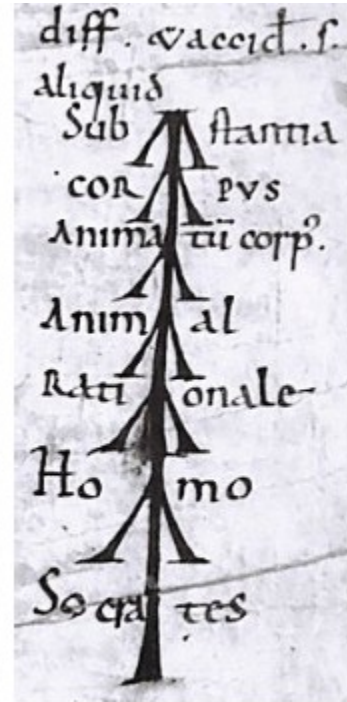 diff. & accid. s.
aliquid
Sub stantia
cor pus
Anima tū corpꝰ.
Anim al
Rati onale
Ho mo
So cra tes